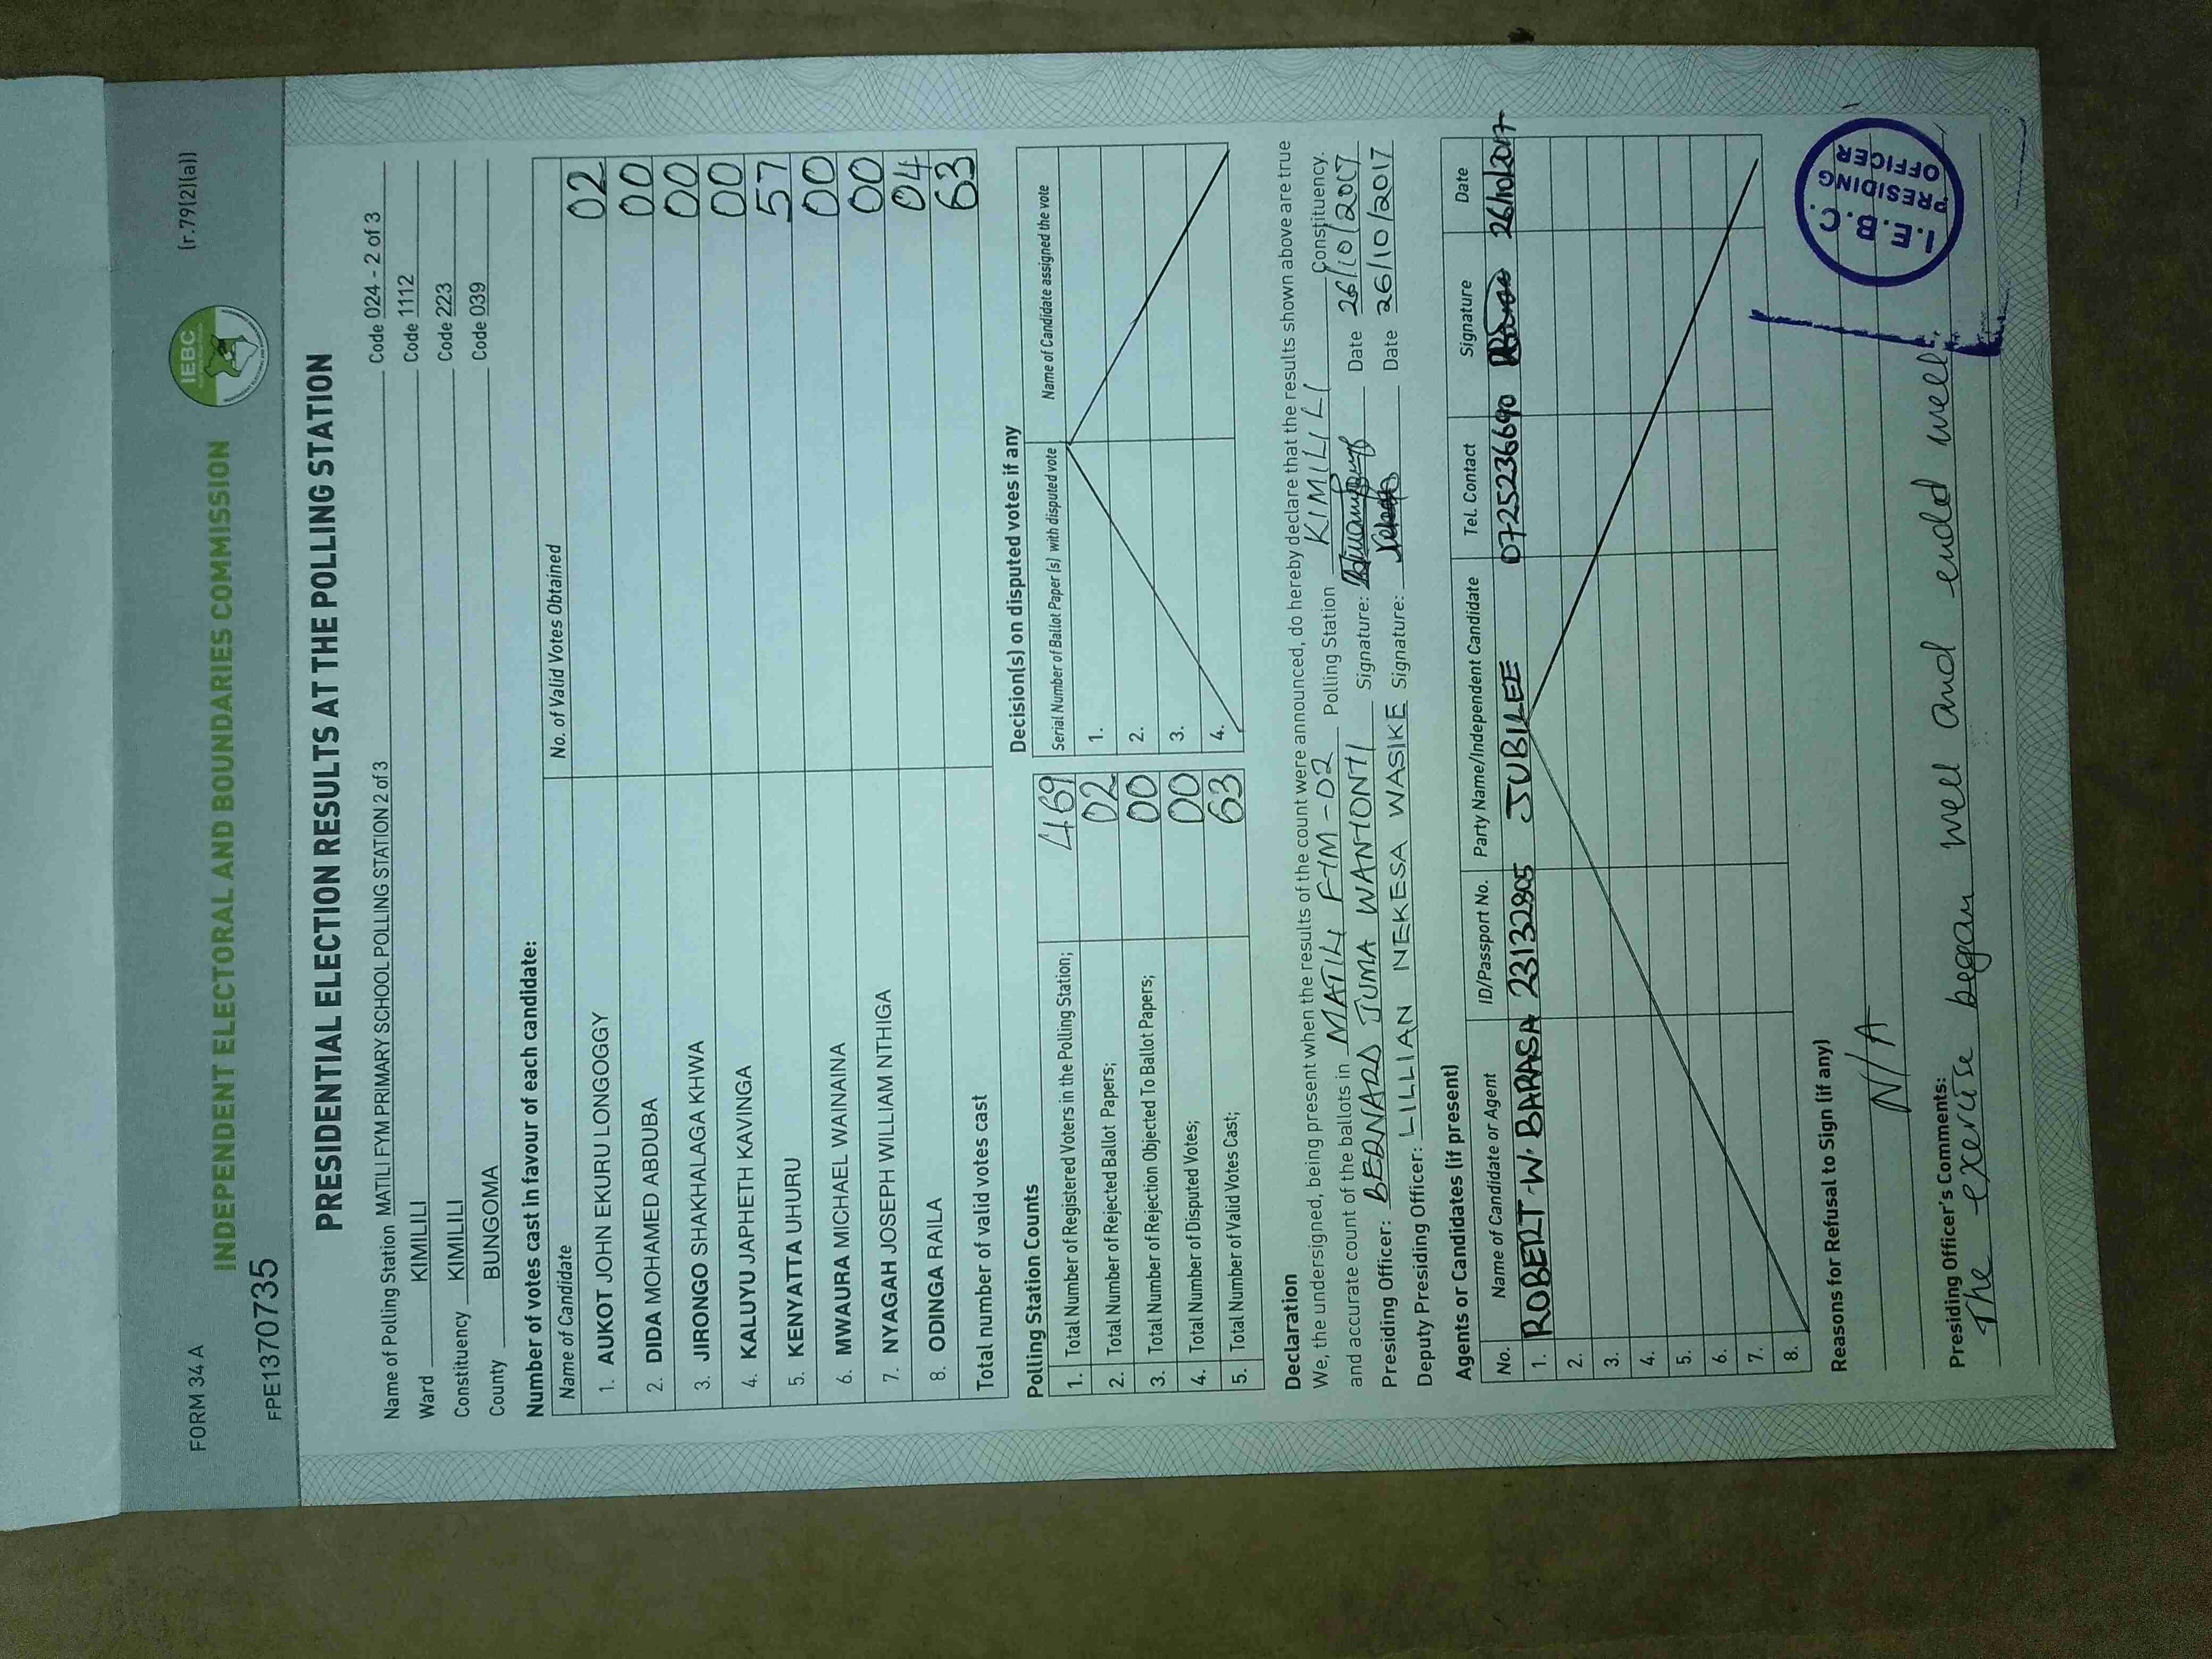 FORM 34 A
[r.79(2)(a)]
IEBC
INDEPENDENT ELECTORAL AND BOUNDARIES COMMISSION
FPE1370735
PRESIDENTIAL ELECTION RESULTS AT THE POLLING STATION
Name of Polling Station MATILI FYM PRIMARY SCHOOL POLLING STATION 2 of 3 Code 024 - 2 of 3
Ward KIMILILI Code 1112
Constituency KIMILILI Code 223
County BUNGOMA Code 039
Number of votes cast in favour of each candidate:
Name of Candidate No. of Valid Votes Obtained
1. AUKOT JOHN EKURU LONGOGGY 02
2. DIDA MOHAMED ABDUBA 00
3. JIRONGO SHAKHALAGA KHWA 00
4. KALUYU JAPHETH KAVINGA 00
5. KENYATTA UHURU 57
6. MWAURA MICHAEL WAINAINA 00
7. NYAGAH JOSEPH WILLIAM NTHIGA 00
8. ODINGA RAILA 04
Total number of valid votes cast 63
Polling Station Counts
1. Total Number of Registered Voters in the Polling Station; 469
2. Total Number of Rejected Ballot Papers; 02
3. Total Number of Rejection Objected To Ballot Papers; 00
4. Total Number of Disputed Votes; 00
5. Total Number of Valid Votes Cast; 63
Decision(s) on disputed votes if any
Serial Number of Ballot Paper (s) with disputed vote Name of Candidate assigned the vote
1.
2.
3.
4.
Declaration
We, the undersigned, being present when the results of the count were announced, do hereby declare that the results shown above are true
and accurate count of the ballots in MATILI FYM - 02 Polling Station KIMILILI Constituency.
Presiding Officer: BERNARD JUMA WANYONYI Signature: Date 26/10/2017
Deputy Presiding Officer: LILLIAN NEKESA WASIKE Signature: Date 26/10/2017
Agents or Candidates (if present)
No. Name of Candidate or Agent ID/Passport No. Party Name/Independent Candidate Tel. Contact Signature Date
1. ROBERT W. BARASA 23132805 JUBILEE 0725236690 26/10/2017
2.
3.
4.
5.
6.
7.
8.
Reasons for Refusal to Sign (if any)
N/A
Presiding Officer's Comments:
The exercise began well and ended well.
I.E.B.C.
PRESIDING
OFFICER